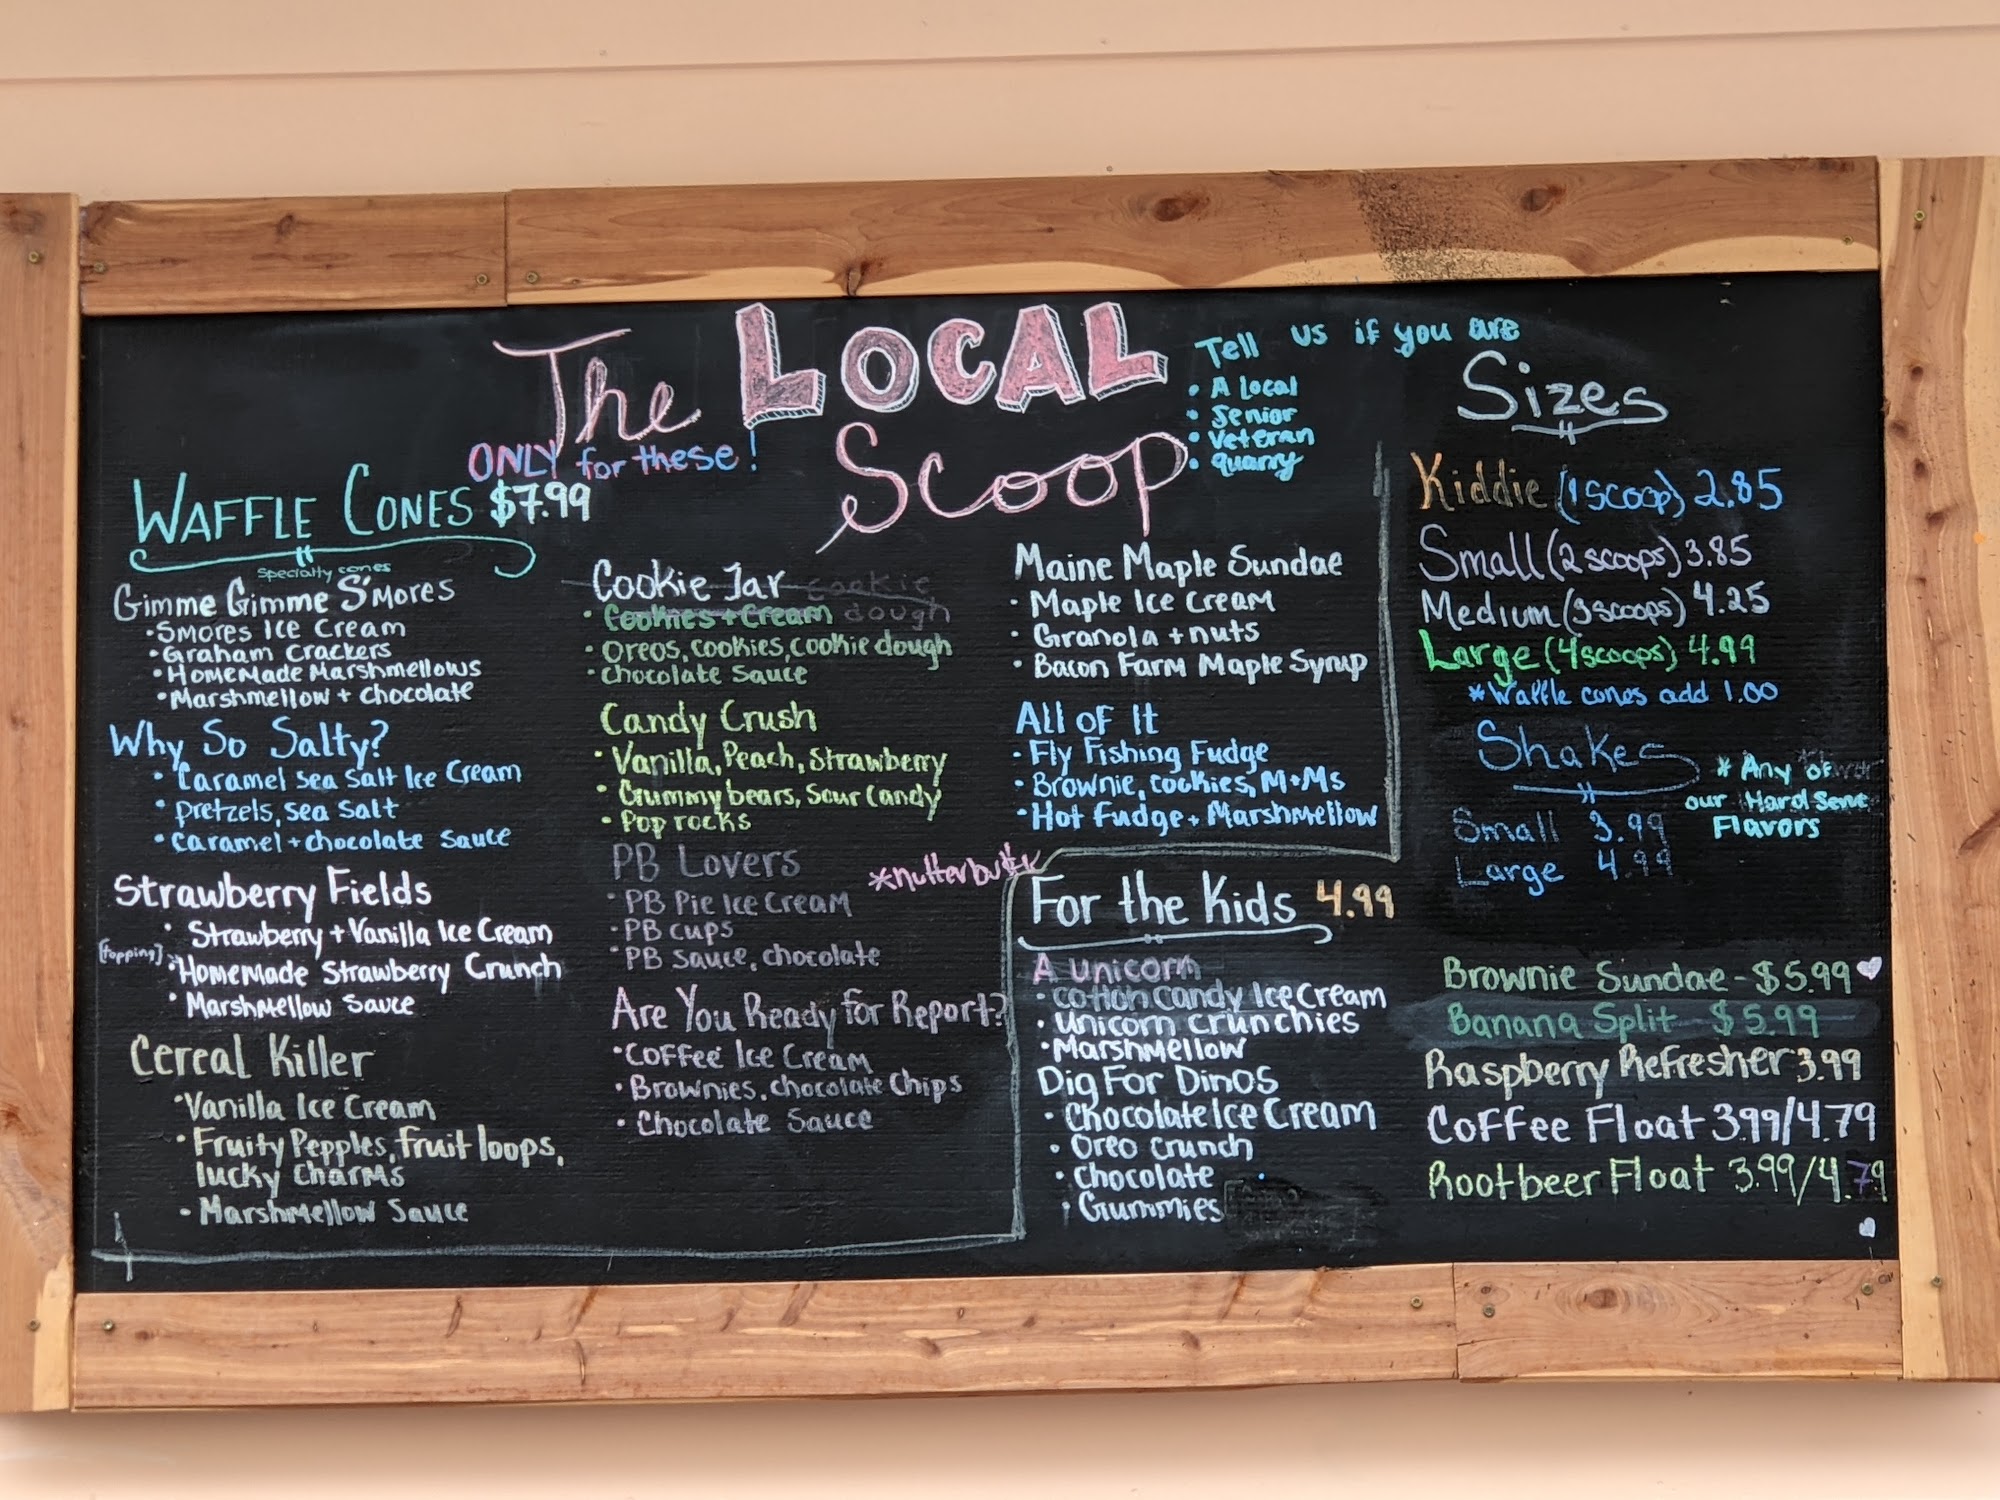 The LOCAL
Scoop
Tell us if you are
• A Local
• Senior
• Veteran
• Quarry
ONLY for these!
WAFFLE CONES $7.99
Specialty cones
Gimme Gimme S'mores
• Smores Ice Cream
• Graham Crackers
• Homemade Marshmellows
• Marshmellow + chocolate
Why So Salty?
• Caramel sea salt Ice Cream
• Pretzels, sea salt
• Caramel + chocolate sauce
Strawberry Fields
• Strawberry + Vanilla Ice Cream
[topping] • Homemade Strawberry Crunch
• Marshmellow sauce
Cereal Killer
• Vanilla Ice Cream
• Fruity Pepples, fruit loops,
lucky charms
• Marshmellow Sauce
Cookie Jar cookie
• Cookies + Cream dough
• Oreos, cookies, cookie dough
• Chocolate Sauce
Candy Crush
• Vanilla, Peach, Strawberry
• Gummybears, Sour Candy
• Pop rocks
PB Lovers
*nutterbutter
• PB Pie Ice Cream
• PB cups
• PB sauce, chocolate
Are You Ready for Report?
• Coffee Ice Cream
• Brownies, chocolate Chips
• Chocolate Sauce
Maine Maple Sundae
• Maple Ice Cream
• Granola + nuts
• Bacon Farm Maple Syrup
All of It
• Fly Fishing Fudge
• Brownie, cookies, M+Ms
• Hot Fudge + Marshmellow
For the Kids 4.99
A unicorn
• Cotton Candy Ice Cream
• Unicorn crunchies
• Marshmellow
Dig For Dinos
• Chocolate Ice Cream
• Oreo crunch
• Chocolate
• Gummies
Sizes
Kiddie (1 scoop) 2.85
Small (2 scoops) 3.85
Medium (3 scoops) 4.25
Large (4 scoops) 4.99
*Waffle cones add 1.00
Shakes
* Any of
our Hard Serve
Flavors
Small 3.99
Large 4.99
Brownie Sundae - $5.99
Banana Split - $5.99
Raspberry Refresher 3.99
Coffee Float 3.99/4.79
Rootbeer Float 3.99/4.79